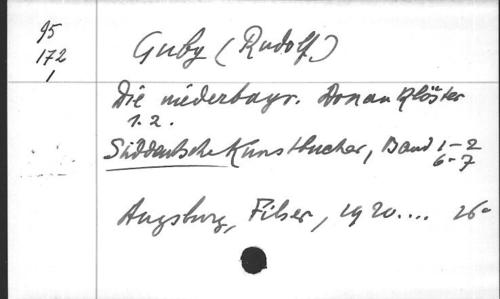 95
172
1
Guby (Rudolf)
Die niederbayr. Donauklöster
1. 2.
Süddeutsche Kunstbücher, Band 1-2
6-7
Augsburg, Filser, 1920....